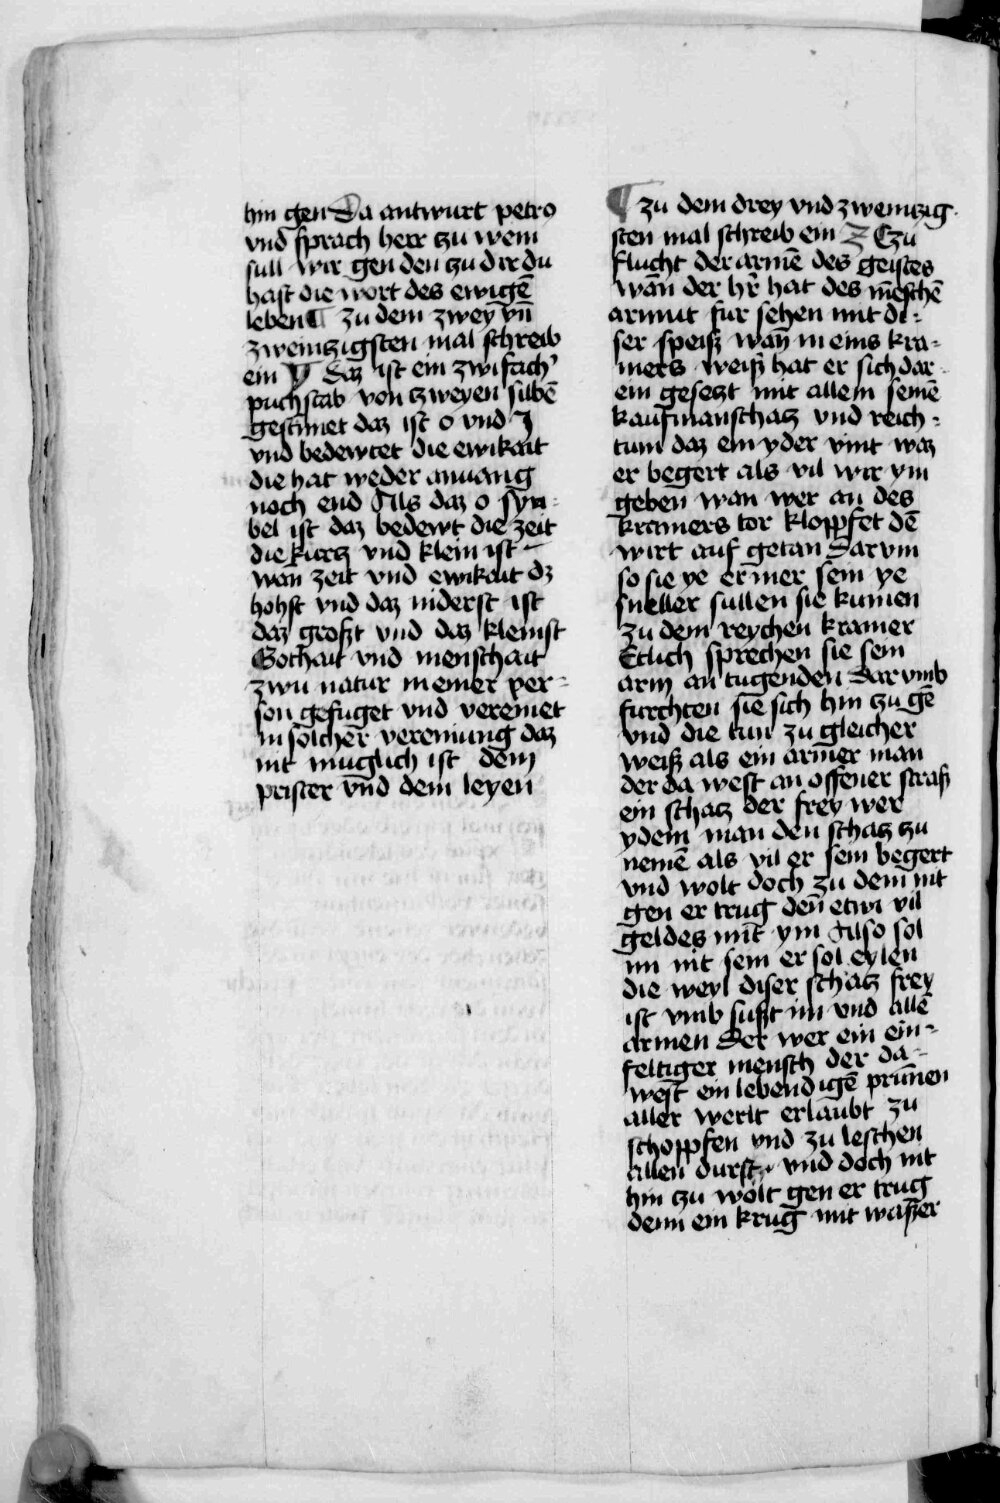 hin gen Da antwurt petro
vnd sprach herr czu wem
sull wir gen den czu dir du
hast die wort des ewigē
leben ¶ zu dem zwey vn̄
zweinczigsten mal schreib
ein Y daz ist ein zwifach
puchstab von czweyen silbē
gestim̄et daz ist o vnd J
vnd bedewtet die ewikait
die hat weder anuang
noch end Als daz o syn-
bel ist daz bedewt die zeit
die kurcz vnd klein ist
wan zeit vnd ewikait dz
hohst vnd daz niderst ist
daz groszt vnd daz kleinst
Gothait vnd menschait
zwu natur in einer per-
son gefuget vnd vereinet
in solcher vereinung daz
nit muglich ist dem
prister vnd dem leyen
¶ zu dem drey vnd zweinczig-
sten mal schreib ein Z Czu
flucht der armē des geistes
wan̄ der hr̄ hat des mēschē
armut fur sehen mit di-
ser speisz wan̄ in eins kra-
mers weisz hat er sich dar-
ein geseczt mit allem seinē
kaufmanschacz vnd reich-
tum daz ein yder vint waz
er begert als vil wir ym
geben wan wer an des
kramers tor klopfet dē
wirt auf getan Darvm
so sie ye ermer sein ye
sneller sullen sie kumen
zu dem reychen kramer
Etlich sprechen sie sein
arm an tugenden Dar vmb
furchten sie sich hin czu gē
vnd die tun zu gleicher
weisz als ein armer man
der da west an offener strasz
ein schacz der frey wer
ydem man den schacz zu
nemē als vil er sein begert
vnd wolt doch zu dem nit
gen er trug den̄ etwi vil
geldes mit ym Also sol
im nit sein er sol eylen
die weyl diser schacz frey
ist vmb suszt im vnd allē
armen Der wer ein ein-
feltiger mensch der da-
west ein lebendigē prun̄en
aller werlt erlaubt zu
schopfen vnd zu leschen
allen durst vnd doch nit
hin czu wolt gen er trug
denn ein krug mit waszer